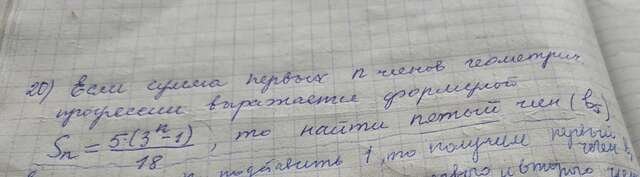 20) Если сумма первых n членов геометрич.
прогрессии выражается формулой
Sₙ = 5·(3ⁿ-1)/18, то найти пятый член (b₅)
подставить 1, то получим первый
член
и второго